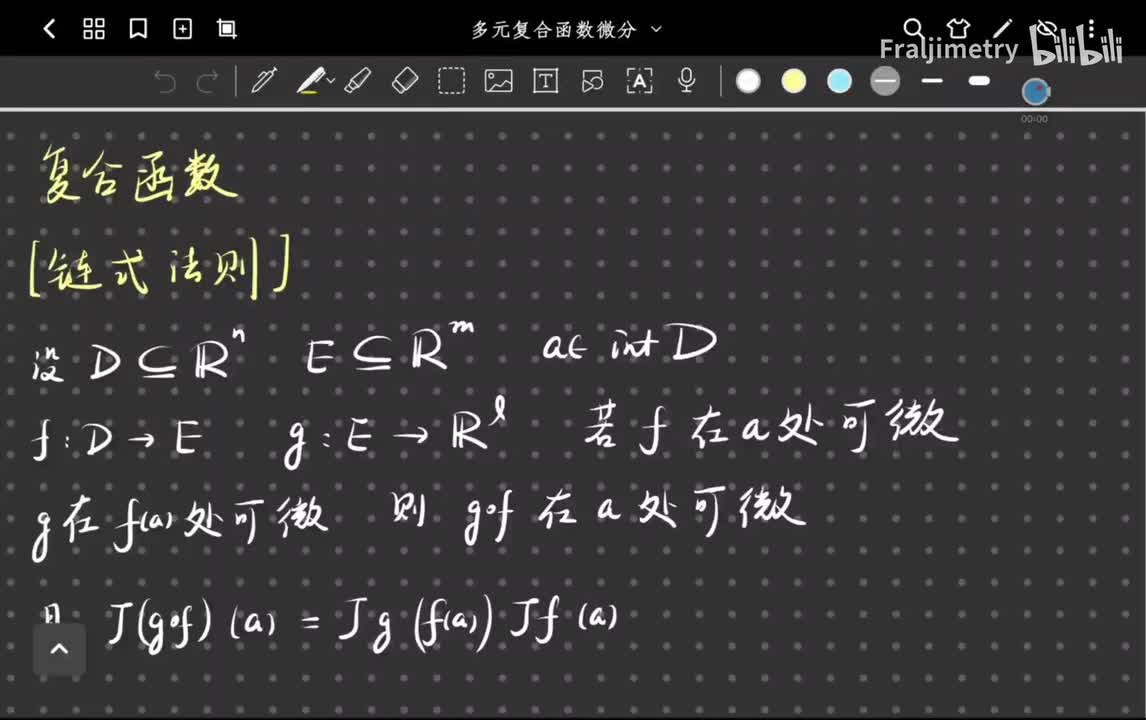 多元复合函数微分
Fraljimetry bilibili
00:00
复合函数
[链式法则]
设 D ⊆ ℝⁿ E ⊆ ℝᵐ a∈ int D
f : D → E g : E → ℝˡ 若 f 在 a 处可微
g 在 f(a) 处可微 则 g∘f 在 a 处可微
J(g∘f)(a) = Jg(f(a)) Jf(a)